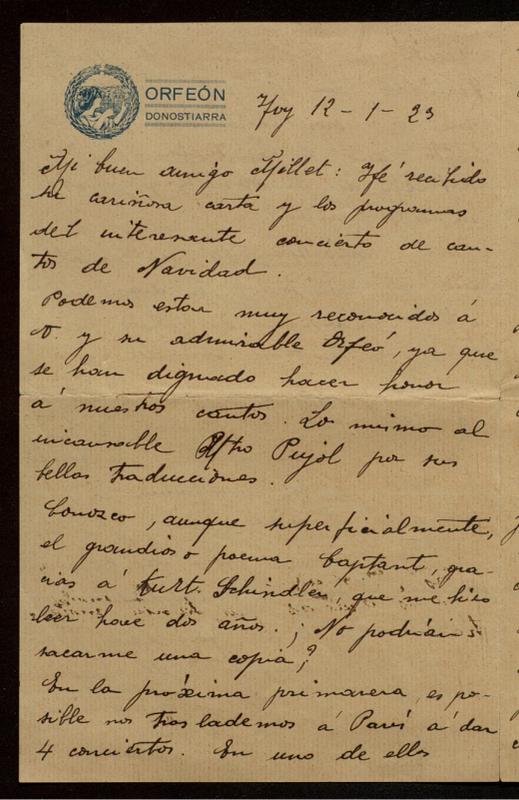 ORFEÓN
DONOSTIARRA
Hoy 12-1-23
Mi buen amigo Millet: Hé recibido
su cariñosa carta y los programas
del interesante concierto de can-
tos de Navidad.
Podemos estar muy reconocidos á
V. y su admirable Orfeó, ya que
se han dignado hacer honor
á nuestros cantos. Lo mismo al
incansable Mtro Pujol por sus
bellas traducciones.
Conozco, aunque superficialmente,
el grandioso poema Captant, gra-
cias á Kurt. Schindler, que me hizo
leer hace dos años. ¿No podrían
sacarme una copia?
En la próxima primavera, es po-
sible nos traslademos á París á dar
4 conciertos. En uno de ellos